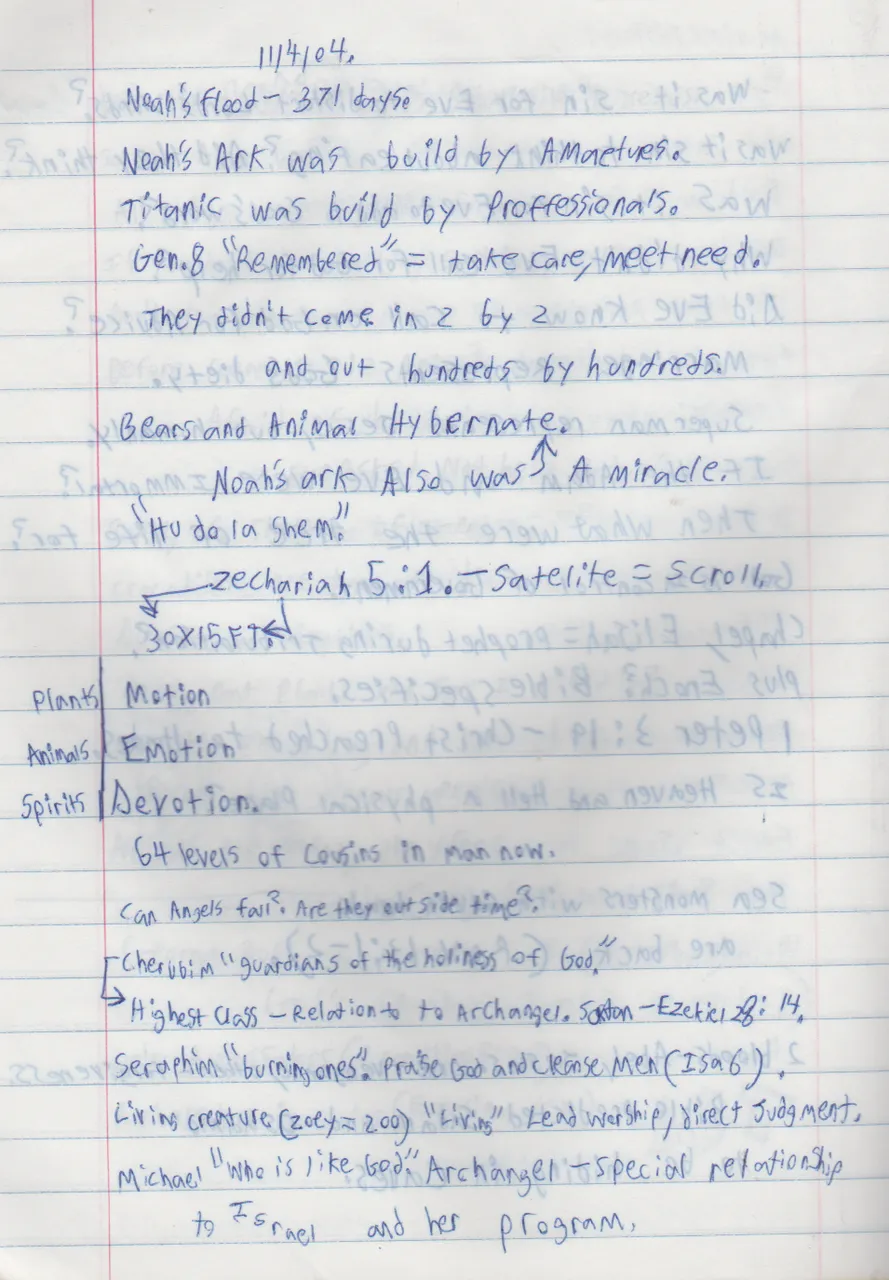 11/4/04.
Noah's flood - 371 days.
Noah's Ark was build by Amaetues.
Titanic was build by Proffessionals.
Gen. 8 "Remembered" = take care, meet need.
They didn't come in 2 by 2
and out hundreds by hundreds.
Bears and Animal Hybernate.
Noah's ark Also was A miracle.
"Hu do la shem".
Zechariah 5:1. - Satelite = Scroll.
30X15 FT.
Plants Motion
Animals Emotion
Spirits Devotion.
64 levels of cousins in man now.
Can Angels fall? Are they outside time?
Cherubim "guardians of the holiness of God."
Highest Class - Relation to to Archangel. Satan - Ezekiel 28: 14.
Seraphim "burning ones". Praise God and cleanse Men (Isa 6).
Living creature (zoey = zoo) "Living" Lead worship, direct Judgment.
Michael "who is like God." Archangel - special relationship
to Israel and her program.